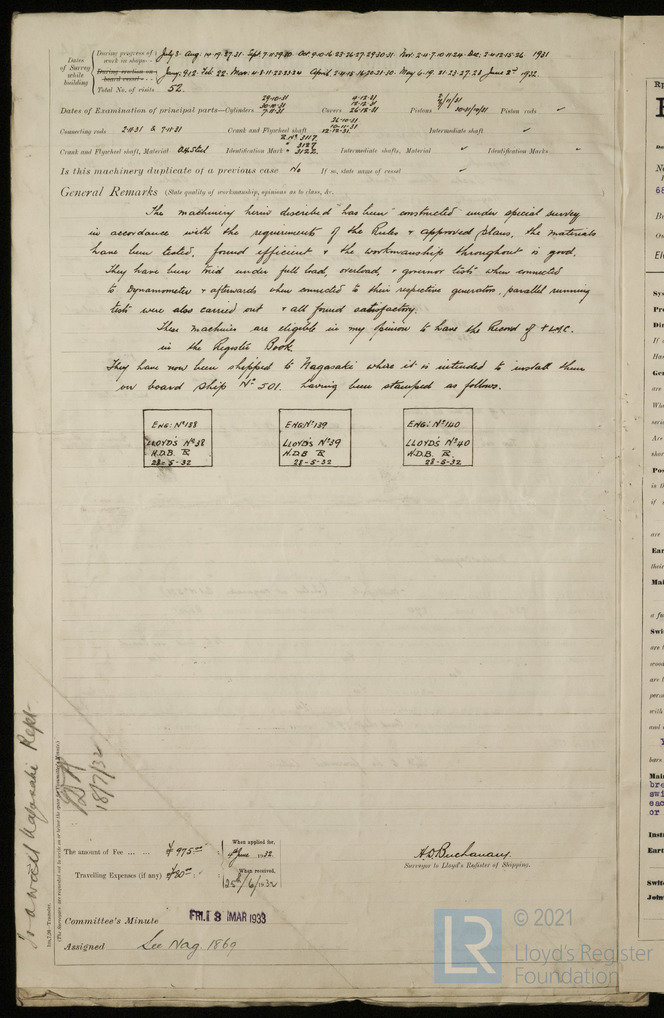 Dates of Survey while building
During progress of work in shops - - July 3. Aug: 14·19·27·31 Sept. 7·11·29·30 Oct. 9·10·16·23·26·27·29·30·31. Nov. 2·4·7·10·11·24. Dec. 2·4·12·15·26 1931
During erection on board vessel - - - Jany. 9·12. Feb. 22. Mar. 4·8·11·22·23·24 April 2·4·15·16·20·21·30. May 6·19·21·23·27·28 June 2nd 1932.
Total No. of visits 52.
Dates of Examination of principal parts—Cylinders 29·10·31 30·11·31 7·11·31 Covers 4·12·31 12·12·31 26·12·31 Pistons Piston rods ✓
Connecting rods 2·11·31 & 7·11·31 Crank and Flywheel shaft 26·10·31 10·11·31 12·12·31. Intermediate shaft ✓
Crank and Flywheel shaft, Material O.H. Steel Identification Mark R.Nº 3117. " 3127 " 3122. Intermediate shafts, Material ✓ Identification Marks ✓
Is this machinery duplicate of a previous case No If so, state name of vessel ✓
General Remarks (State quality of workmanship, opinions as to class, &c.)
The machinery herein described has been constructed under special survey
in accordance with the requirements of the Rules & approved plans, the materials
have been tested, found efficient & the workmanship throughout is good.
They have been tried under full load, overload, & governor tests when connected
to Dynamometer & afterwards when connected to their respective generators. parallel running
tests were also carried out & all found satisfactory.
These machines are eligible in my opinion to have the Record of + LMC.
in the Register Book.
They have now been shipped to Nagasaki where it is intended to install them
on board Ship Nº 501. having been stamped as follows.
ENG: Nº 138
LLOYD'S Nº 38
H.D.B. R
28-5-32
ENG Nº 139
LLOYD'S Nº 39
H.D.B. R
28-5-32
ENG: Nº 140
LLOYD'S Nº 40
H.D.B. R
28-5-32
18/7/32
Nagasaki Rept.
(The Surveyors are requested not to write on or below the space for Committee's Minute.)
The amount of Fee ... ... ¥975.00
When applied for, 4th June 1932
Travelling Expenses (if any) ¥80.00
When received, 25th/6/1932
H.D. Buchanan.
Surveyor to Lloyd's Register of Shipping.
Committee's Minute FRI. 3 MAR 1933
Assigned See Nag. 1869
© 2021
LR Lloyd's Register
Foundation